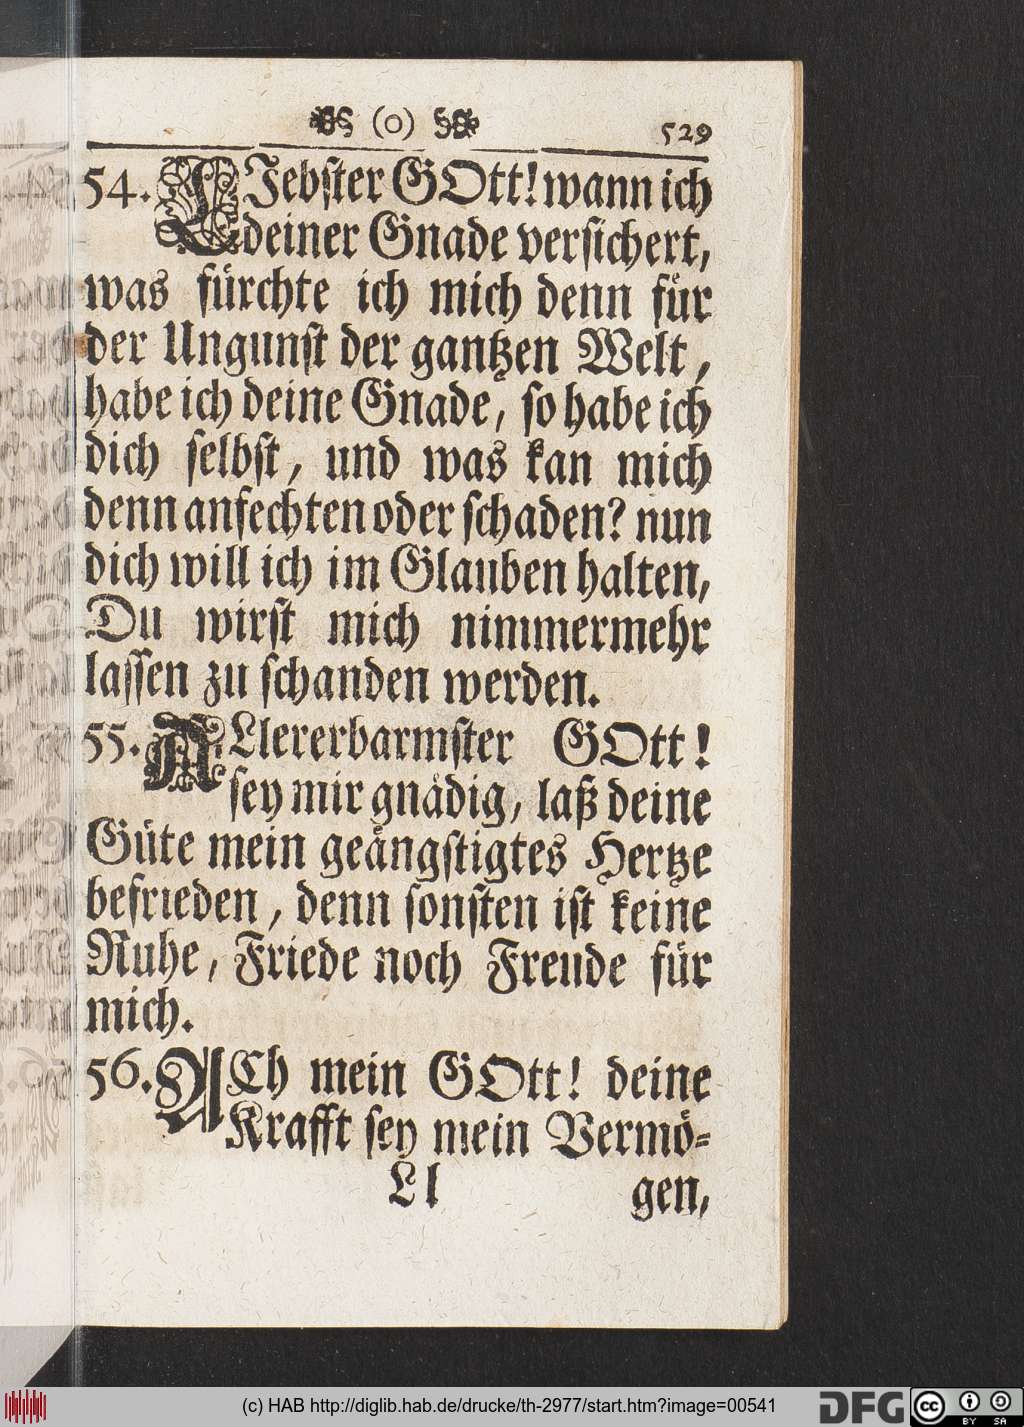 (o) 529
54. LJebster GOtt! wann ich
deiner Gnade versichert,
was fürchte ich mich denn für
der Ungunst der gantzen Welt,
habe ich deine Gnade, so habe ich
dich selbst, und was kan mich
denn anfechten oder schaden? nun
dich will ich im Glauben halten,
Du wirst mich nimmermehr
lassen zu schanden werden.
55. ALlererbarmster GOtt!
sey mir gnådig, laß deine
Güte mein geångstigtes Hertze
befrieden, denn sonsten ist keine
Ruhe, Friede noch Freude für
mich.
56. ACh mein GOtt! deine
Krafft sey mein Vermö-
Ll gen,
(c) HAB http://diglib.hab.de/drucke/th-2977/start.htm?image=00541
DFG
cc BY SA